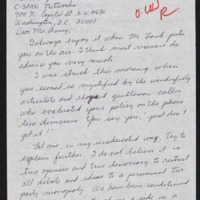 C-SPAN Networks
400 N. Capitol St. N.W. #650
Washington, D.C. 20001
Dear Ms. 
I always enjoy it when Mr. Lamb puts
you on the air. I think most viewers do
admire you very much.
I was struck this morning when
you seemed so mystified by the wonderfully
articulate and gentleman caller
who evaluated your policy on the phone
line divisions. You say you, "just don't
get it"!
Let me, in my uneducated way, try to
explain further. I do not believe it is
true openness and true democracy to restrict
all debate and ideas to a permanent two
party monopoly. We have been conditioned
a side in a